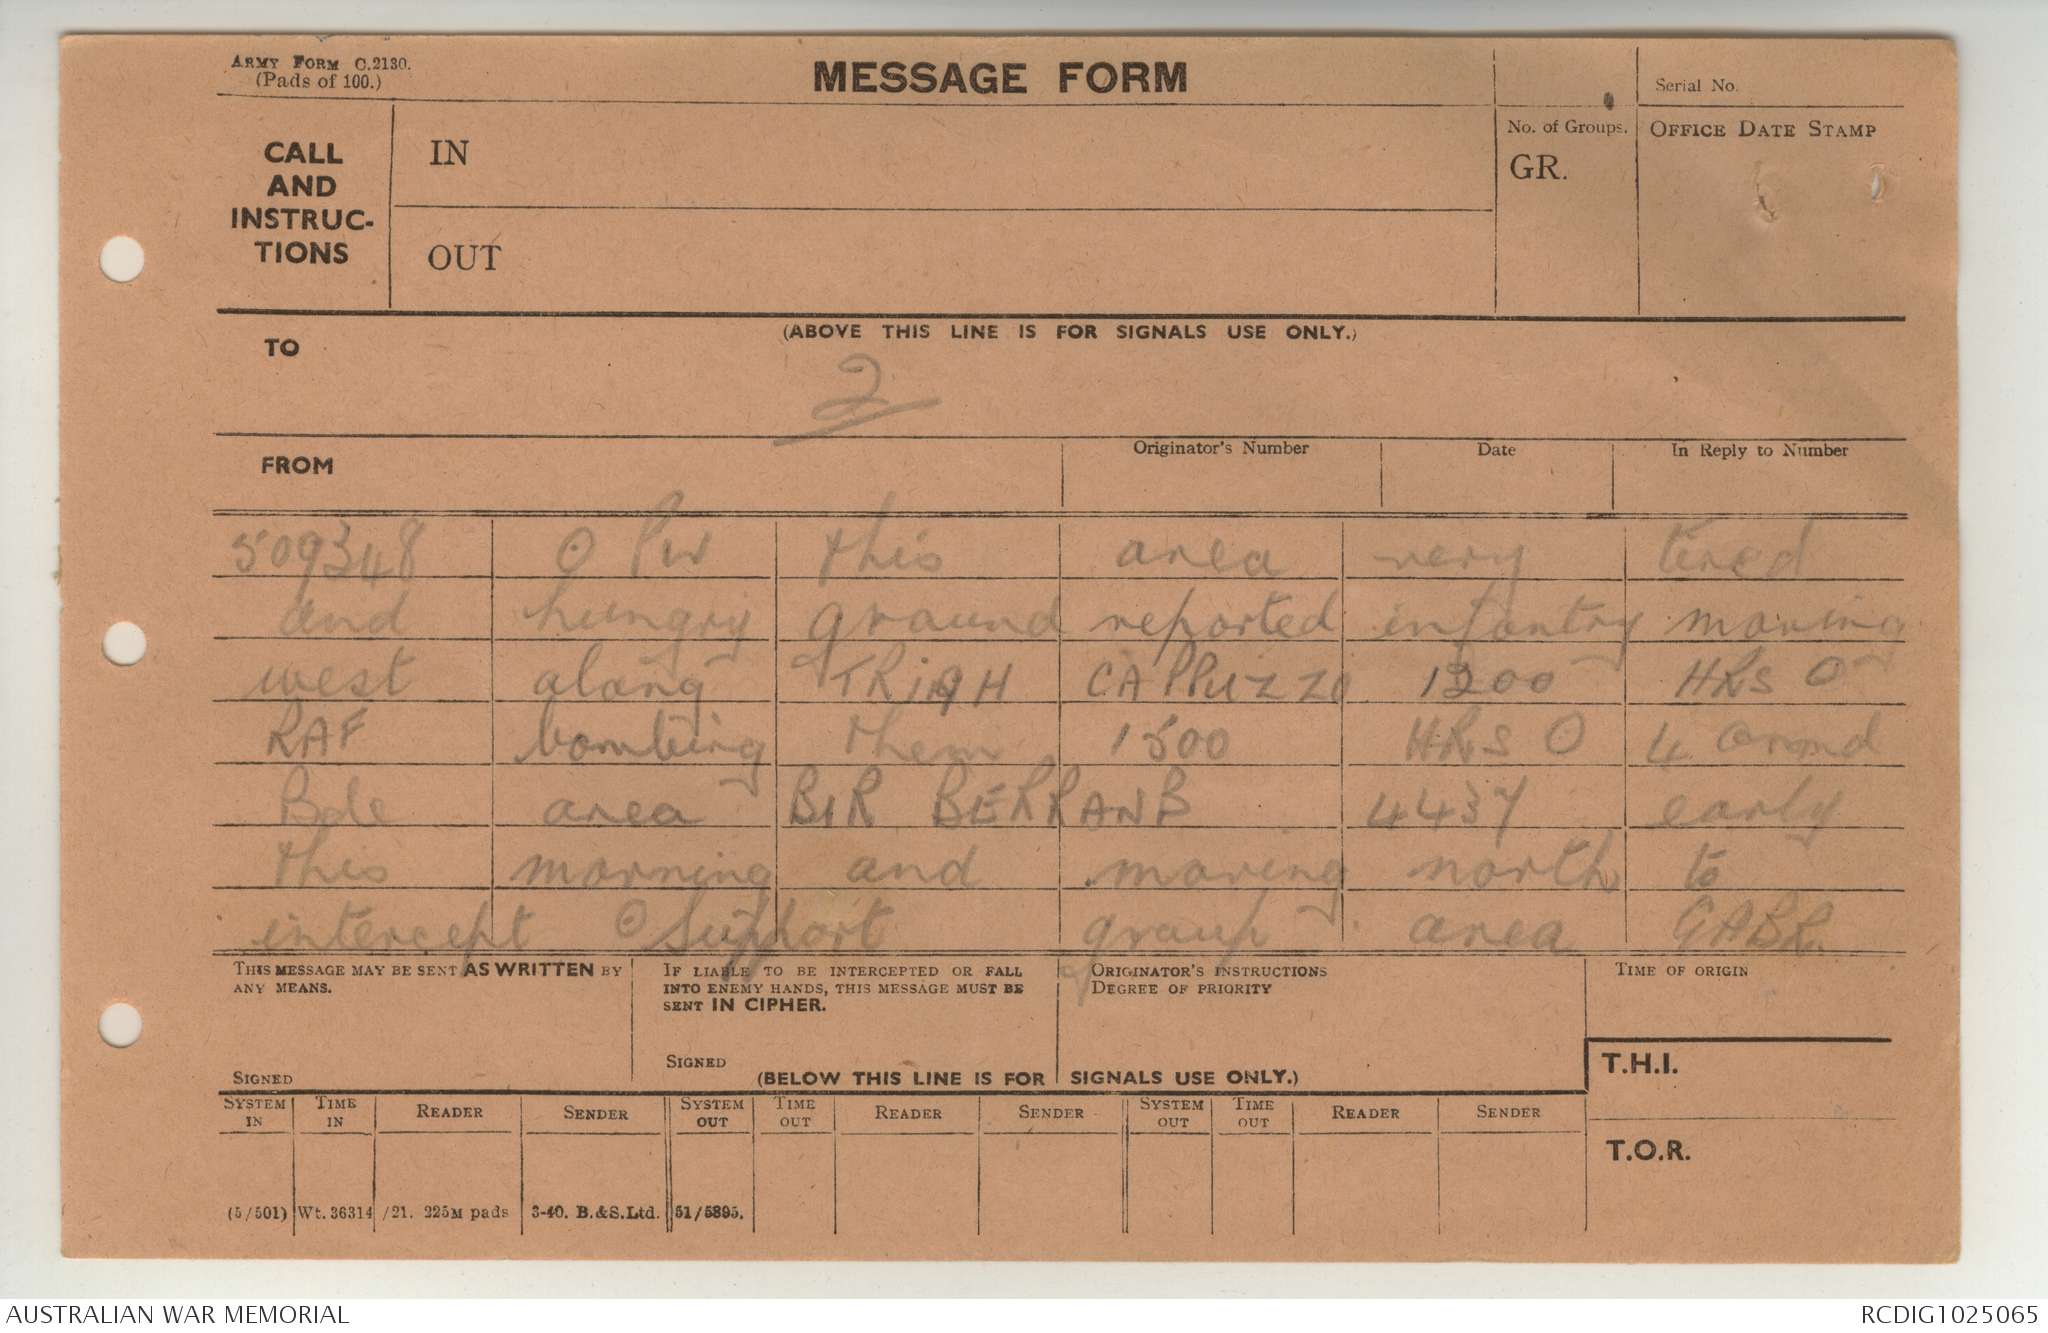 ARMY FORM C.2130.
(Pads of 100.)
MESSAGE FORM
Serial No.
CALL
AND
INSTRUC-
TIONS
IN
OUT
No. of Groups.
GR.
OFFICE DATE STAMP
(ABOVE THIS LINE IS FOR SIGNALS USE ONLY.)
TO
2
FROM
Originator's Number
Date
In Reply to Number
509348 O PW this area very tired
and hungry ground reported infantry moving
west along TRIGH CAPPUZZO 1200 HRS O
RAF bombing them 1500 HRS O 4 armd
Bde area BIR BERRANB 4437 early
this morning and moving north to
intercept O Support group area GABR.
THIS MESSAGE MAY BE SENT AS WRITTEN BY
ANY MEANS.
SIGNED
IF LIABLE TO BE INTERCEPTED OR FALL
INTO ENEMY HANDS, THIS MESSAGE MUST BE
SENT IN CIPHER.
SIGNED
ORIGINATOR'S INSTRUCTIONS
DEGREE OF PRIORITY
TIME OF ORIGIN
(BELOW THIS LINE IS FOR SIGNALS USE ONLY.)
T.H.I.
SYSTEM IN TIME IN READER SENDER SYSTEM OUT TIME OUT READER SENDER SYSTEM OUT TIME OUT READER SENDER
T.O.R.
(5/501) Wt. 36314/21. 225M pads 3-40. B.&S.Ltd. 51/5895.
AUSTRALIAN WAR MEMORIAL
RCDIG1025065